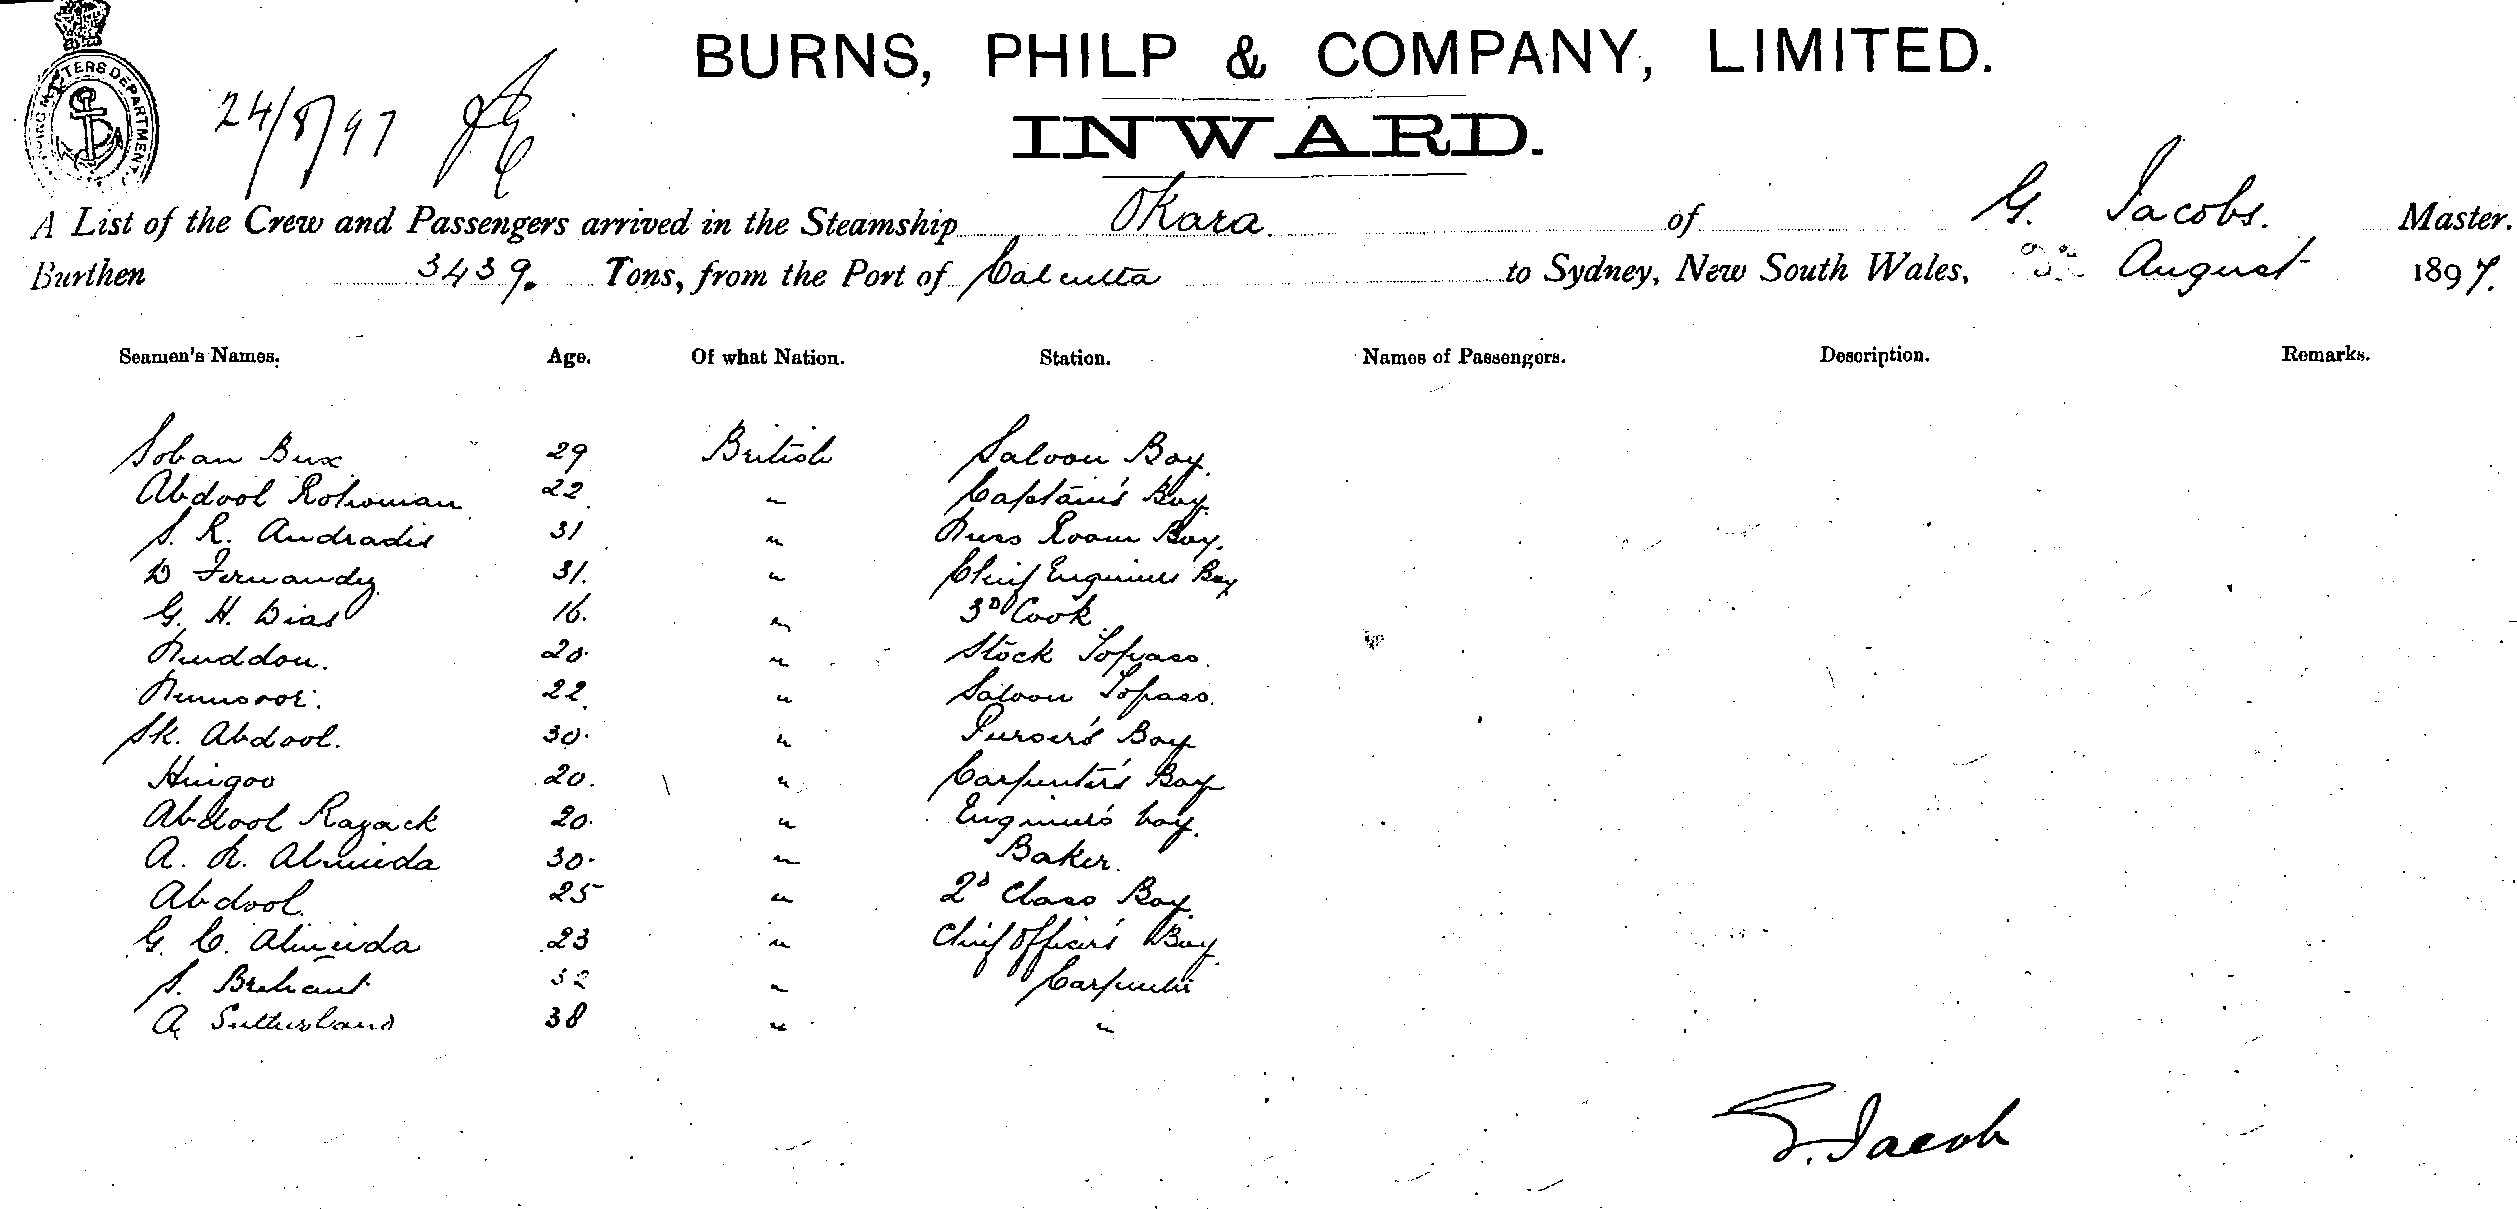 BURNS, PHILP & COMPANY, LIMITED.
INWARD.
24/8/97
A List of the Crew and Passengers arrived in the Steamship Okara of G. Jacobs. Master.
Burthen 3439. Tons, from the Port of Calcutta to Sydney, New South Wales, August 1897.
Seamen's Names. Age. Of what Nation. Station. Names of Passengers. Description. Remarks.
Soban Bux 29 British Saloon Boy.
Abdool Rohoman 22 " Captain's Boy.
S. R. Andradis 31 " Mess Room Boy.
D Fernandez 31. " Chief Engineers Boy
G. H. Dias 16. " 3D Cook
20. " Stock Topass.
22. " Saloon Topass.
Sk. Abdool. 30. " Purser's Boy
Hingoo 20. " Carpenter's Boy
Abdool Razack 20. " Engineer's boy.
A. R. Almeida 30. " Baker.
Abdool. 25 " 2D Class Boy.
G. C. Almeida 23 " Chief Officer's Boy.
S. 32 " Carpenter
A Sutherland 38 " "
G. Jacob